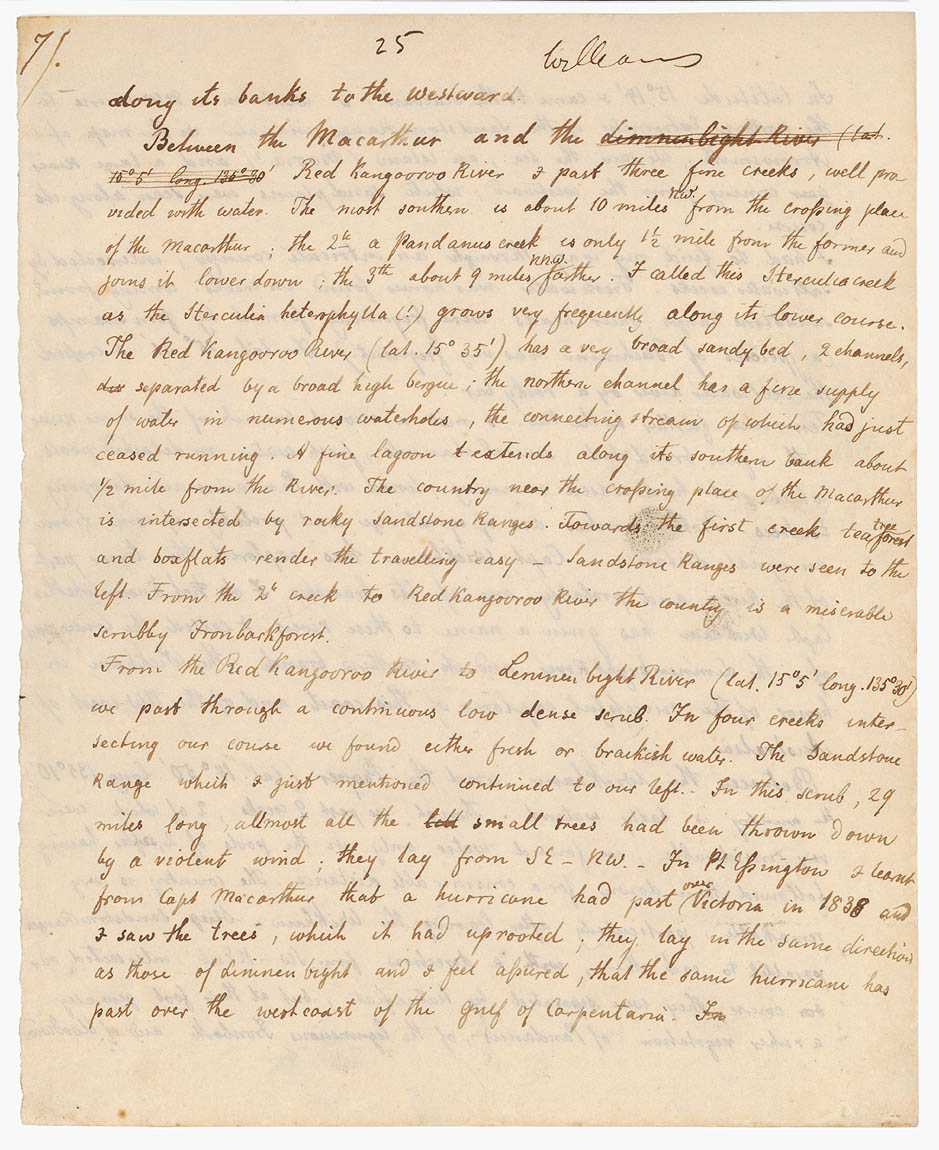 7/.
25
Williams
along its banks to the westward.
Between the Macarthur and the Limmenbight River (lat.
15° 5' long. 135° 30' Red Kangooroo River I past three fine creeks, well pro
vided with water. The most southern is about 10 miles NW. from the crossing place
of the Macarthur; the 2d a Pandanus creek is only 1½ mile from the former and
joins it lower down; the 3th about 9 miles NNW. farther. I called this Sterculia creek
as the Sterculia heterophylla (!) grows very frequently along its lower course.
The Red Kangooroo River (lat. 15° 35') has a very broad sandy bed, 2 channels,
separated by a broad high bergue; the northern channel has a fine supply
of water in numerous waterholes, the connecting stream of which had just
ceased running. A fine lagoon extends along its southern bank about
1/2 mile from the River. The country near the crossing place of the Macarthur
is intersected by rocky sandstone Ranges. Towards the first creek tea tree forest
and boxflats render the travelling easy – Sandstone Ranges were seen to the
left. From the 2d creek to Red Kangooroo River the country is a miserable
scrubby Ironbarkforest.
From the Red Kangooroo River to Limmen bight River (lat. 15° 5' long. 135° 30')
we past through a continuous low dense scrub. In four creeks inter-
secting our course we found either fresh or brackish water. The Sandstone
Range which I just mentioned continued to our left. – In this scrub, 29
miles long, allmost all the small trees had been thrown down
by a violent wind; they lay from SE – NW. – In Pt Essington I learnt
from Capt Macarthur that a hurricane had past over Victoria in 1838 and
I saw the trees, which it had uprooted; they lay in the same direction
as those of Limmen bight and I feel assured, that the same hurricane has
past over the westcoast of the Gulf of Carpentaria. In